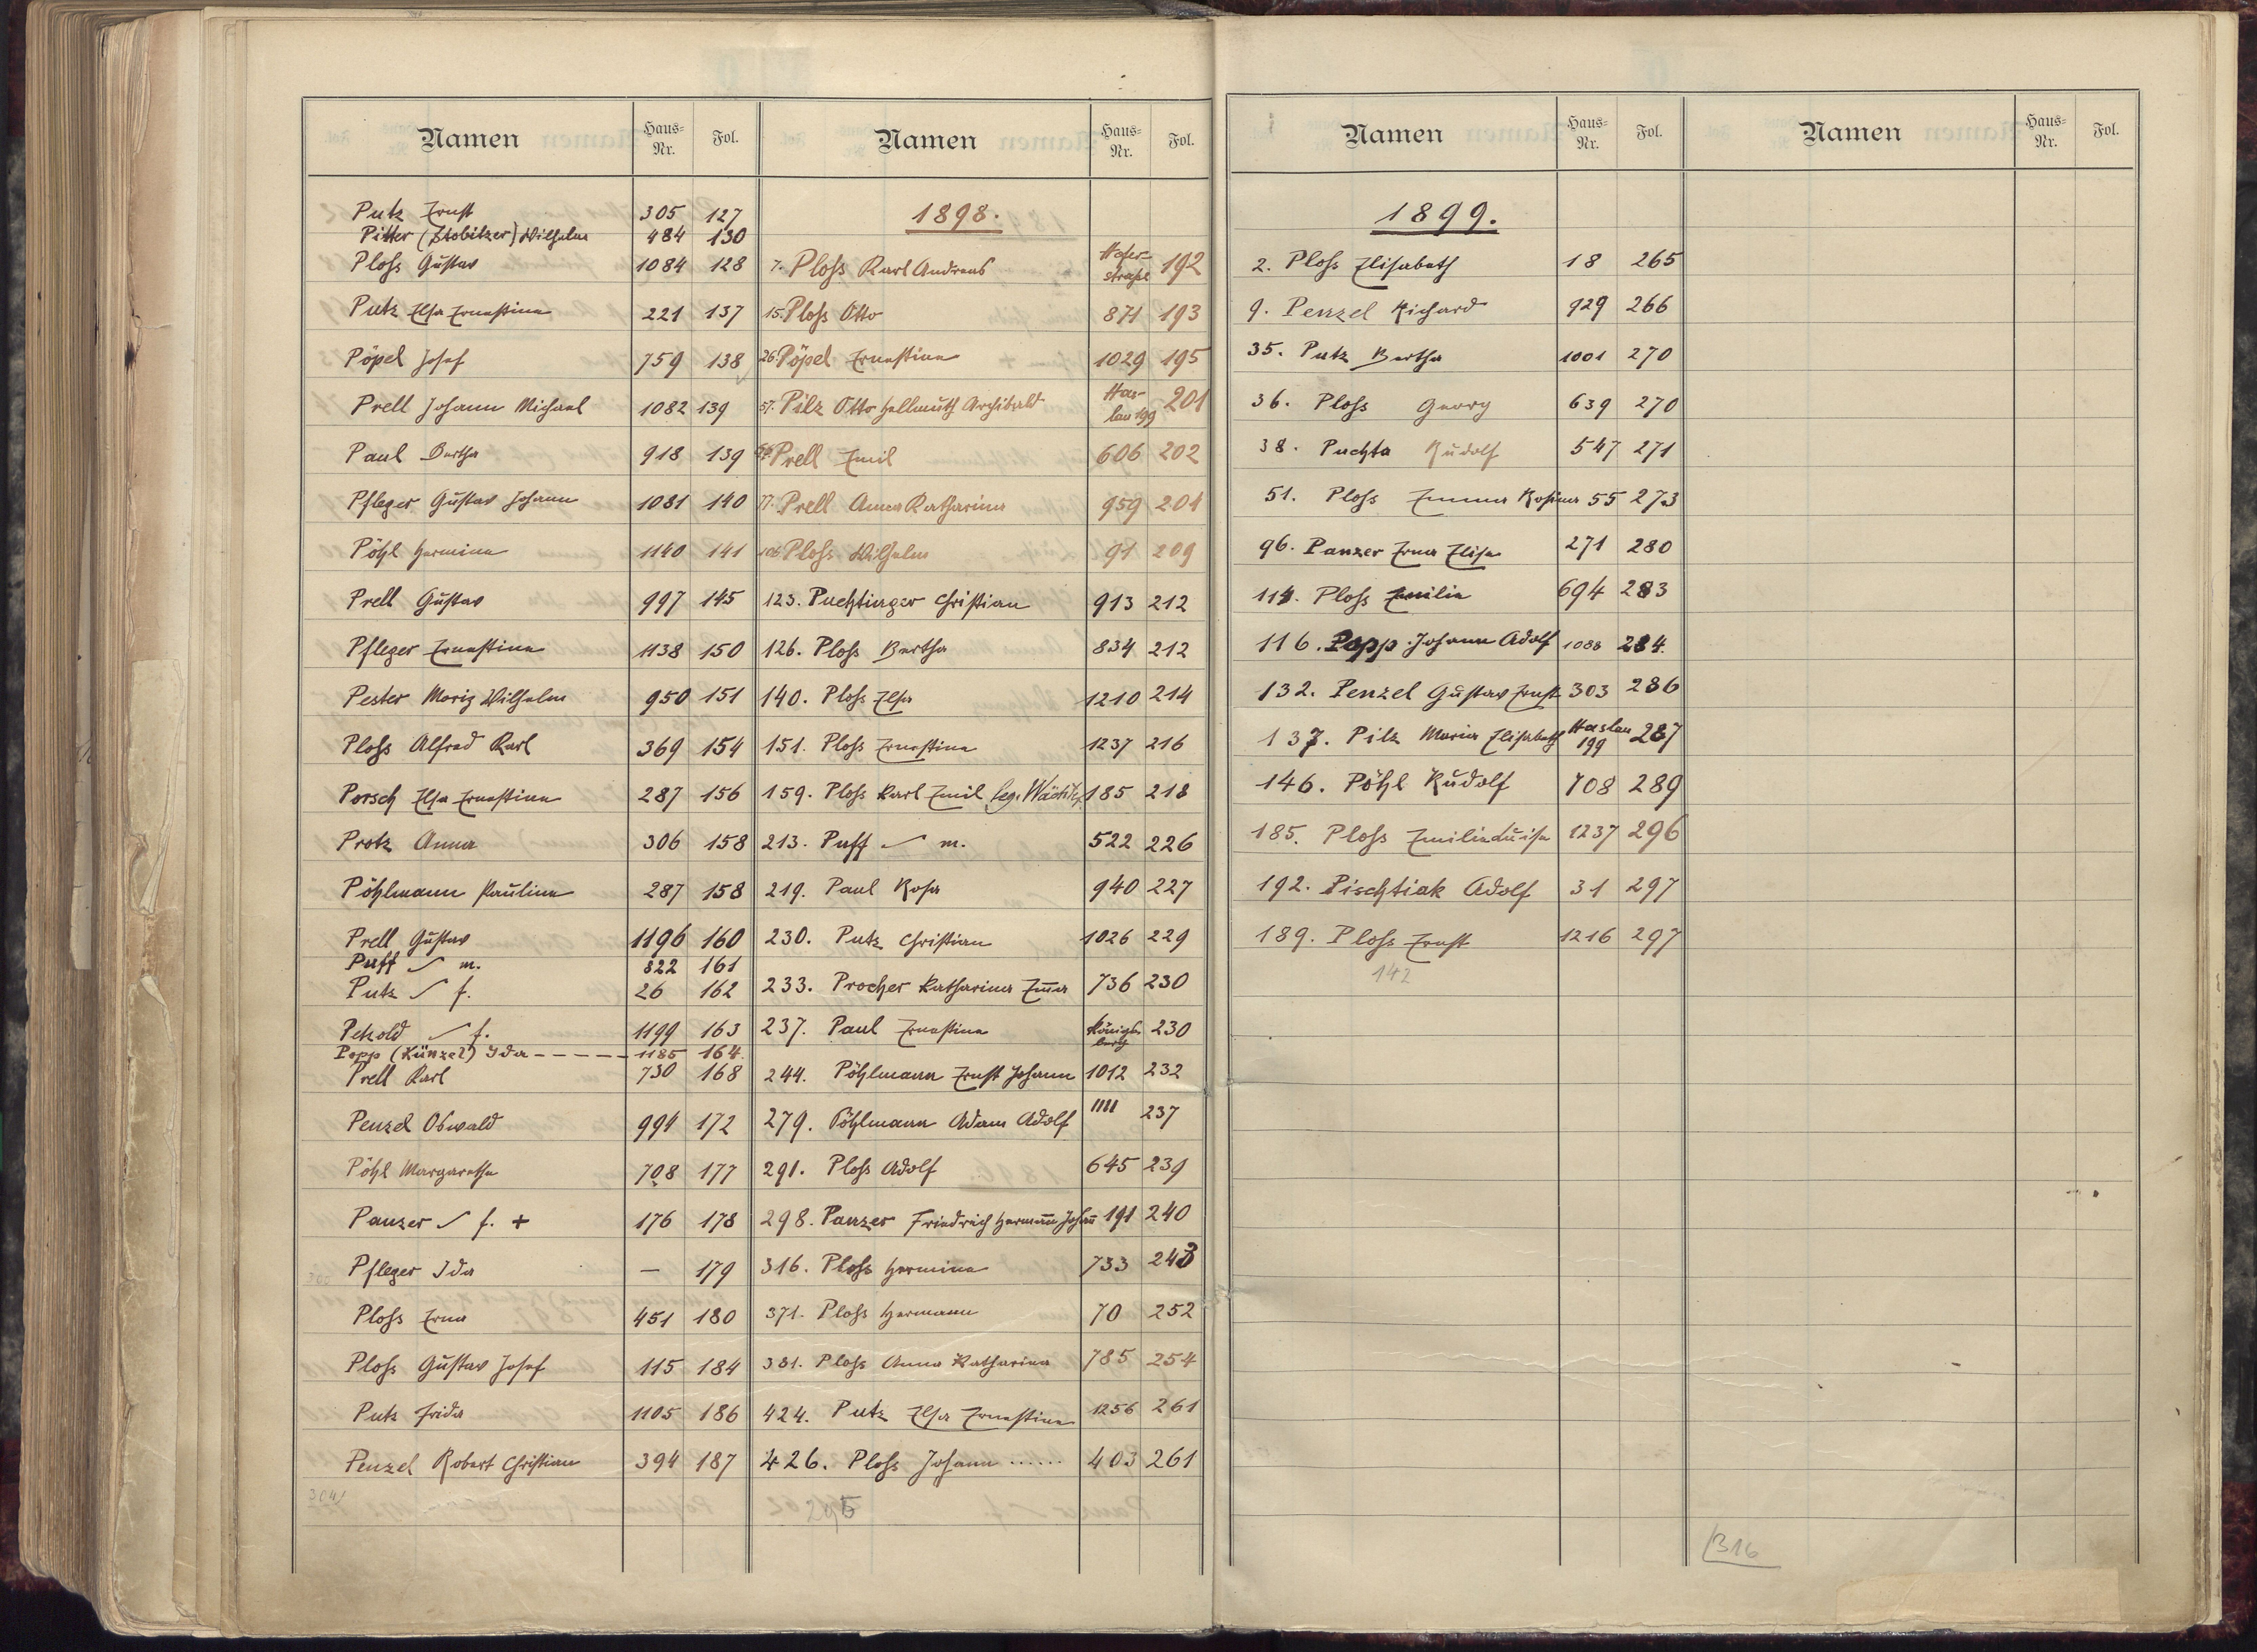 Namen Haus-Nr. Fol.
Putz Ernst 305 127
Pitter (Stobitzer) Wilhelm 484 130
Ploß Gustav 1084 128
Putz Elsa Ernestine 221 137
Pöpel Josef 759 138
Prell Johann Michael 1082 139
Paul Bertha 918 139
Pfleger Gustav Johann 1081 140
Pöhl Hermine 1140 141
Prell Gustav 997 145
Pfleger Ernestine 1138 150
Pester Moriz Wilhelm 950 151
Ploß Alfred Karl 369 154
Porsch Elsa Ernestine 287 156
Protz Anna 306 158
Pöhlmann Pauline 287 158
Prell Gustav 1196 160
Puff m. 822 161
Putz f. 26 162
Petzold f. 1199 163
Popp (Künzel) Ida - - - - - 1185 164.
Prell Karl 730 168
Penzel Oswald 994 172
Pöhl Margaretha 708 177
Panzer f. + 176 178
Pfleger Ida — 179
Ploß Erna 451 180
Ploß Gustav Josef 115 184
Putz Frida 1105 186
Penzel Robert Christian 394 187
304
Namen Haus-Nr. Fol.
1898.
7. Ploß Karl Andreas Hofer-
straße 192
15. Ploß Otto 871 193
26. Pöpel Ernestine 1029 195
57. Pilz Otto Hellmuth Archibald Has-
lau 199 201
Prell Emil 606 202
77. Prell Anna Katharina 959 204
106. Ploß Wilhelm 91 209
123. Puchtinger Christian 913 212
126. Ploß Bertha 834 212
140. Ploß Elsa 1210 214
151. Ploß Ernestine 1237 216
159. Ploß Karl Emil leg. 185 218
213. Puff m. 522 226
219. Paul Rosa 940 227
230. Putz Christian 1026 229
233. Procher Katharina Em̄a 736 230
237. Paul Ernestine Königs-
berg 230
244. Pöhlmann Ernst Johann 1012 232
279. Pöhlmann Adam Adolf 1111 237
291. Ploß Adolf 645 239
298. Panzer Friedrich Herman̄ Johan̄ 191 240
316. Ploß Hermine 733 243
371. Ploß Hermann 70 252
381. Ploß Anna Katharina 785 254
424. Putz Elsa Ernestine 1256 261
426. Ploß Johann ...... 403 261
295
Namen Haus-Nr. Fol.
1899.
2. Ploß Elisabeth 18 265
9. Penzel Richard 929 266
35. Putz Bertha 1001 270
36. Ploß Georg 639 270
38. Puchta Rudolf 547 271
51. Ploß Emma Rosina 55 273
96. Panzer Erna Elise 271 280
114. Ploß Emilie 694 283
116. Popp Johann Adolf 1088 284.
132. Penzel Gustav Ernst 303 286
137. Pilz Maria Elisabeth Haslau
199 287
146. Pöhl Rudolf 708 289
185. Ploß Emilie Luise 1237 296
192. Pischtiak Adolf 31 297
189. Ploß Ernst 1216 297
142
Namen Haus-Nr. Fol.
316